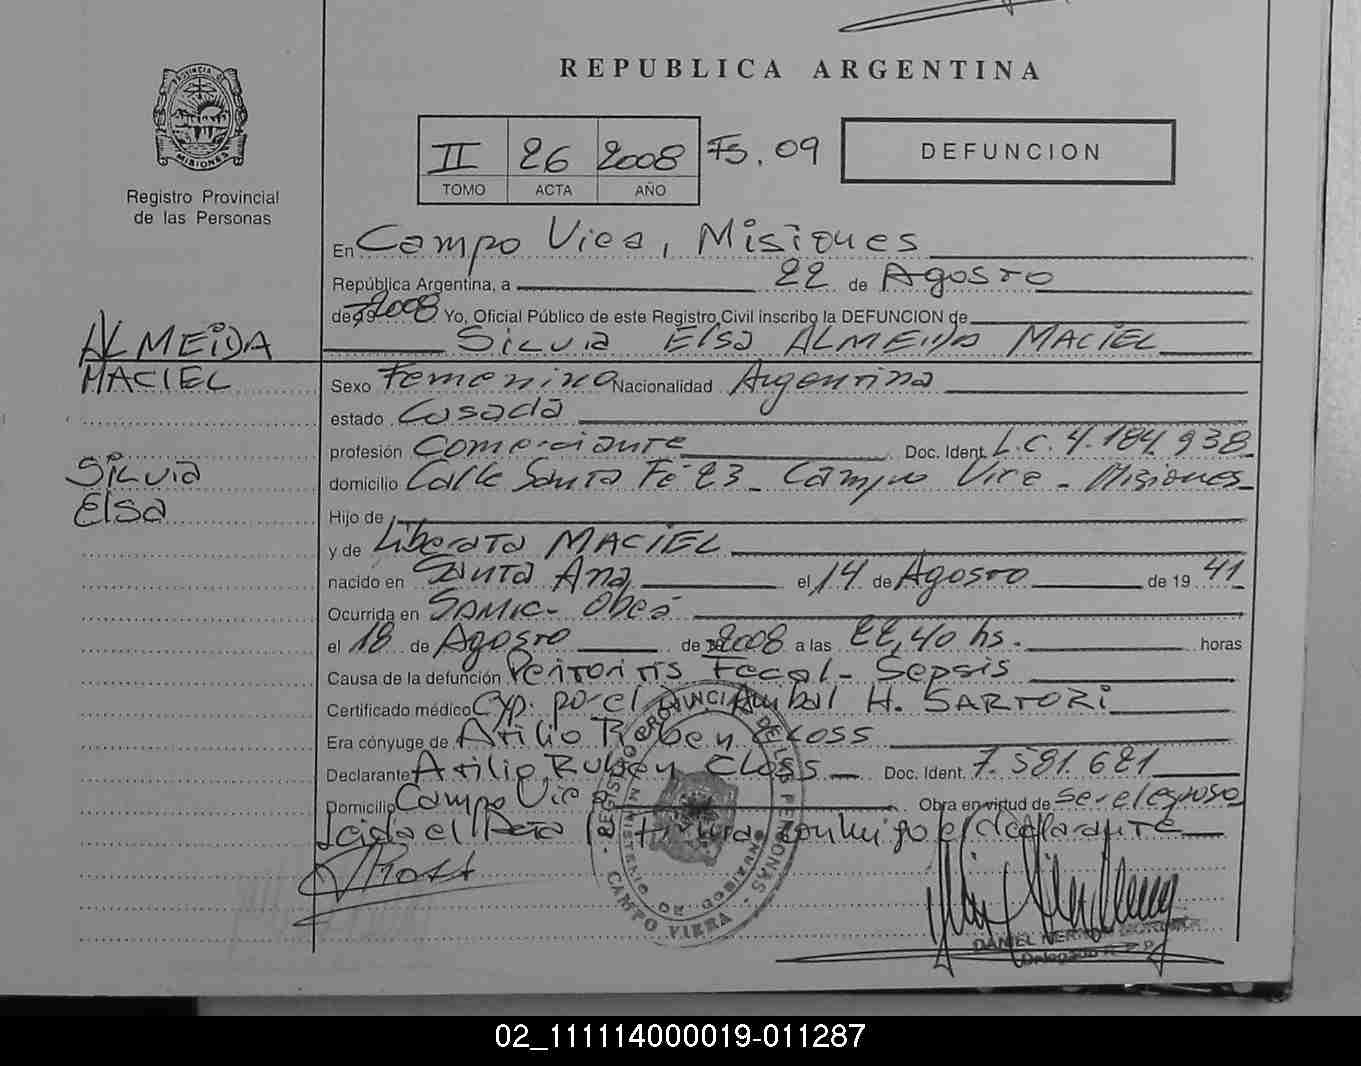 REPUBLICA ARGENTINA
PROVINCIA DE MISIONES
Registro Provincial
de las Personas
II 26 2008 Fs. 09
TOMO ACTA AÑO
DEFUNCION
En Campo Viera, Misiones
República Argentina, a 22 de Agosto
de 2008 Yo, Oficial Público de este Registro Civil inscribo la DEFUNCION de
ALMEIDA Silvia Elsa ALMEIDA MACIEL
MACIEL Sexo Femenino Nacionalidad Argentina
estado Casada
profesión Comerciante Doc. Ident. L.C. 4.184.938
Silvia domicilio Calle Santa Fé 23 - Campo Viera - Misiones
Elsa Hijo de
y de Liberata MACIEL
nacido en Santa Ana el 14 de Agosto de 19 41
Ocurrida en SAMIC - Oberá
el 18 de Agosto de 2008 a las 22,40 hs. horas
Causa de la defunción Peritonitis Fecal - Sepsis
Certificado médico Exp. por el Dr. Anibal H. SARTORI
Era cónyuge de Atilio Ruben CLOSS
Declarante Atilio Ruben CLOSS Doc. Ident. 7.581.681
Domicilio Campo Viera Obra en virtud de ser el esposo
Leida el Acta firma conmigo el declarante
REGISTRO PROVINCIAL DE LAS PERSONAS
MINISTERIO DE GOBIERNO
CAMPO VIERA
DANIEL
Delegado R.P.P.
02_111114000019-011287